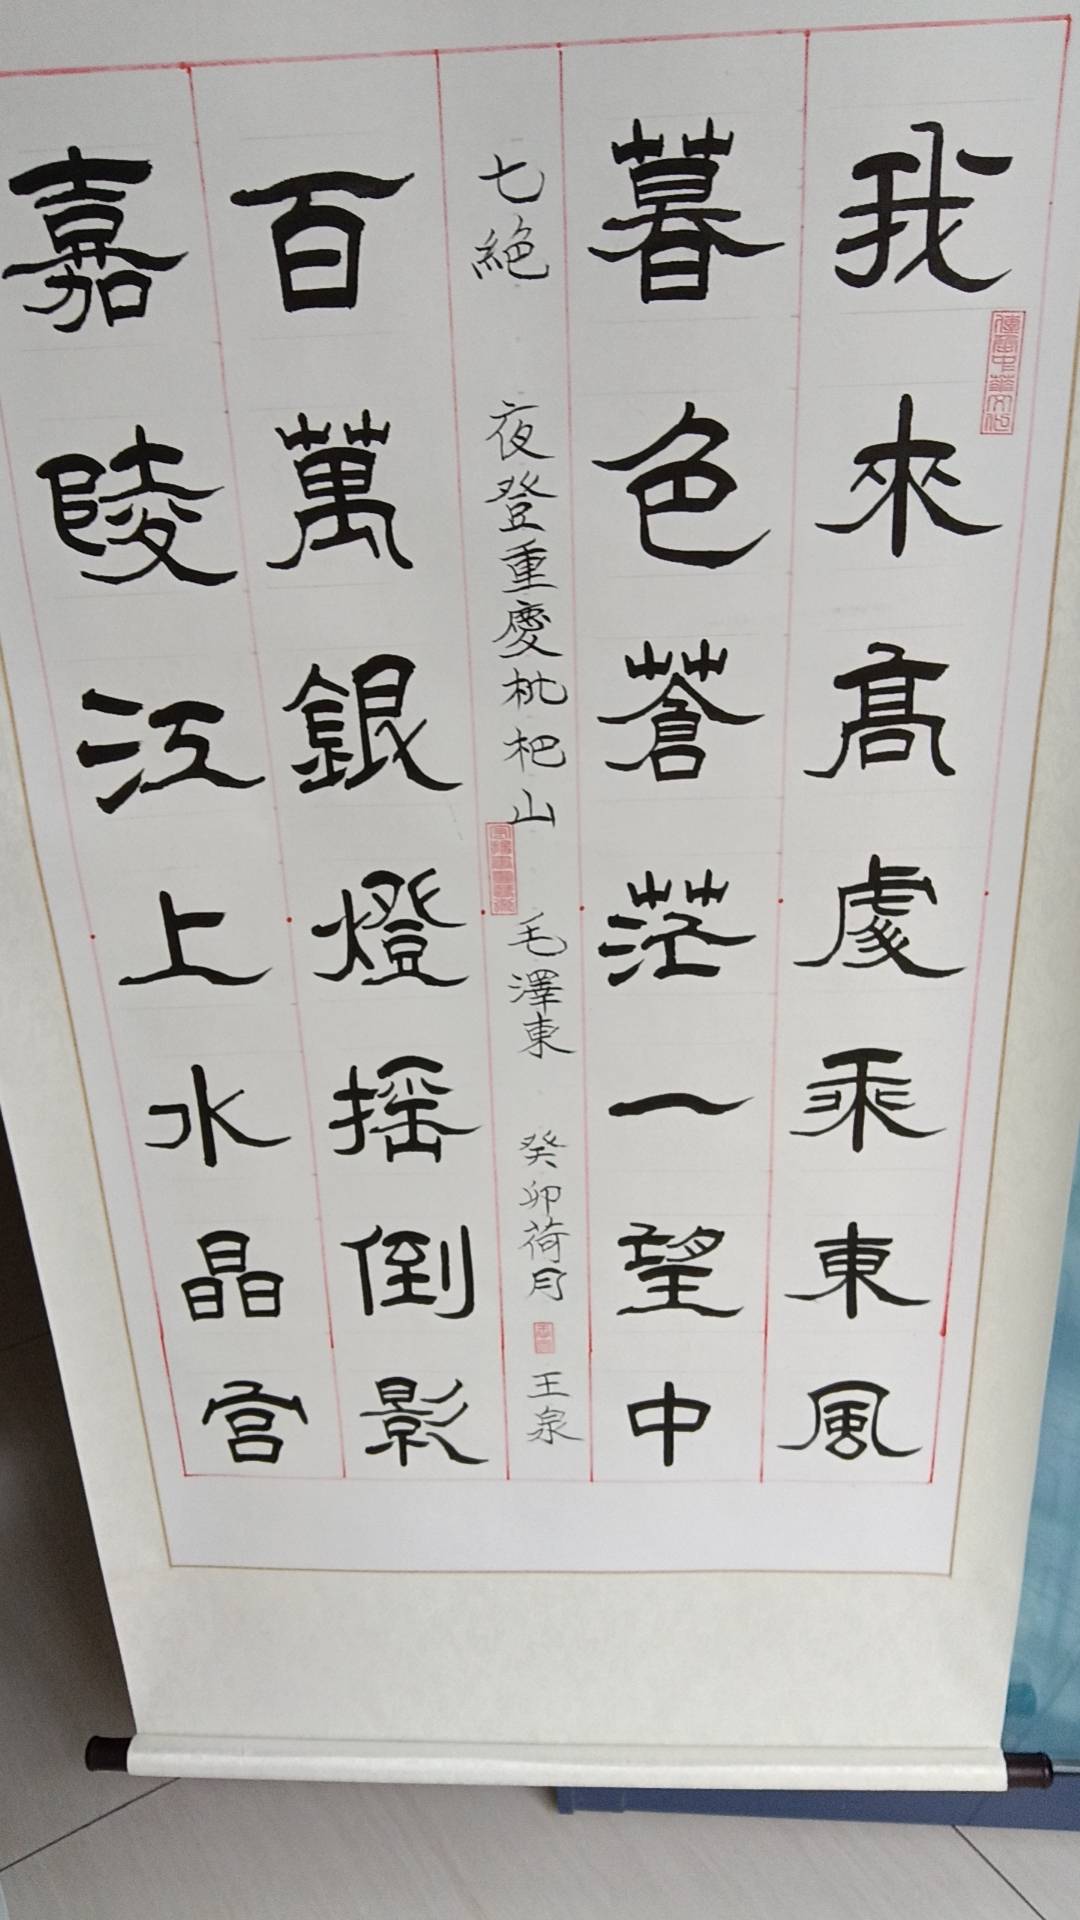 我來高處乘東風
暮色蒼茫一望中
七絕 夜登重慶枇杷山 毛澤東 癸卯荷月 王泉
百萬銀燈搖倒影
嘉陵江上水晶宮